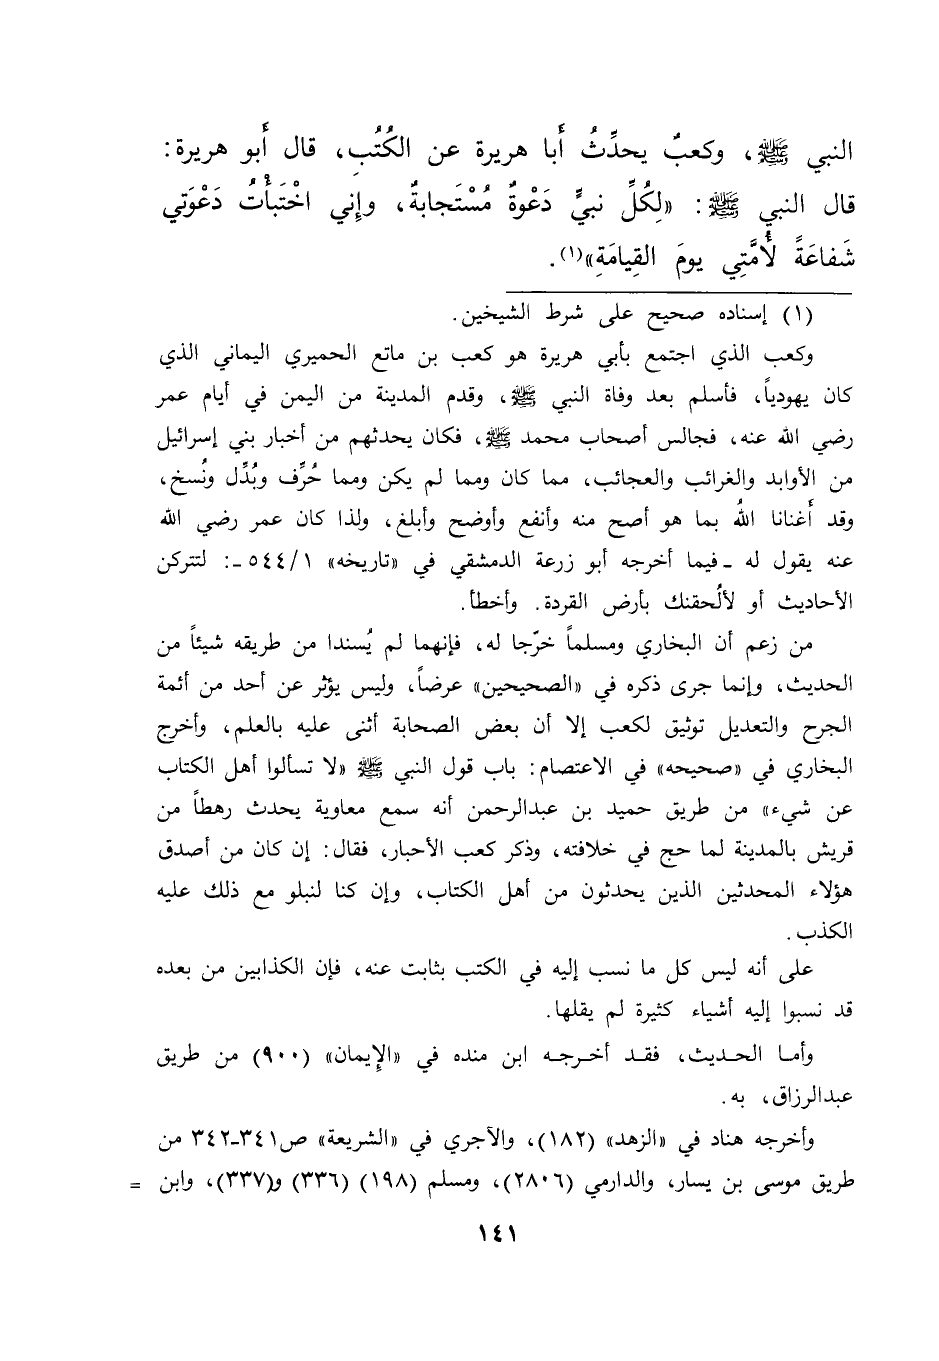 النبي ﷺ، وكعبٌ يحدِّثُ أَبا هريرة عن الكُتُبِ، قال أَبو هريرة:
قال النبي ﷺ: «لِكُلِّ نبيٍّ دَعْوةٌ مُسْتَجابةٌ، وإِني اخْتَبَأْتُ دَعْوَتي
شَفاعَةً لأُمَّتِي يومَ القِيامَةِ»(١).
(١) إسناده صحيح على شرط الشيخين.
وكعب الذي اجتمع بأبي هريرة هو كعب بن ماتع الحميري اليماني الذي
كان يهودياً، فأسلم بعد وفاة النبي ﷺ، وقدم المدينة من اليمن في أيام عمر
رضي الله عنه، فجالس أصحاب محمد ﷺ، فكان يحدثهم من أخبار بني إسرائيل
من الأوابد والغرائب والعجائب، مما كان ومما لم يكن ومما حُرِّف وبُدِّل ونُسخ،
وقد أَغنانا اللهُ بما هو أصح منه وأنفع وأوضح وأبلغ، ولذا كان عمر رضي الله
عنه يقول له -فيما أخرجه أبو زرعة الدمشقي في «تاريخه» ٥٤٤/١ -: لتتركن
الأحاديث أو لأُلحقنك بأرض القردة. وأخطأ.
من زعم أن البخاري ومسلماً خرّجا له، فإنهما لم يُسندا من طريقه شيئاً من
الحديث، وإنما جرى ذكره في «الصحيحين» عرضاً، وليس يؤثر عن أحد من أئمة
الجرح والتعديل توثيق لكعب إلا أن بعض الصحابة أثنى عليه بالعلم، وأخرج
البخاري في «صحيحه» في الاعتصام: باب قول النبي ﷺ «لا تسألوا أهل الكتاب
عن شيء» من طريق حميد بن عبدالرحمن أنه سمع معاوية يحدث رهطاً من
قريش بالمدينة لما حج في خلافته، وذكر كعب الأحبار، فقال: إن كان من أصدق
هؤلاء المحدثين الذين يحدثون من أهل الكتاب، وإن كنا لنبلو مع ذلك عليه
الكذب.
على أنه ليس كل ما نسب إليه في الكتب بثابت عنه، فإن الكذابين من بعده
قد نسبوا إليه أشياء كثيرة لم يقلها.
وأما الحديث، فقد أخرجه ابن منده في «الإيمان» (٩٠٠) من طريق
عبدالرزاق، به.
وأخرجه هناد في «الزهد» (١٨٢)، والآجري في «الشريعة» ص٣٤١-٣٤٢ من
طريق موسى بن يسار، والدارمي (٢٨٠٦)، ومسلم (١٩٨) (٣٣٦) و(٣٣٧)، وابن =
١٤١